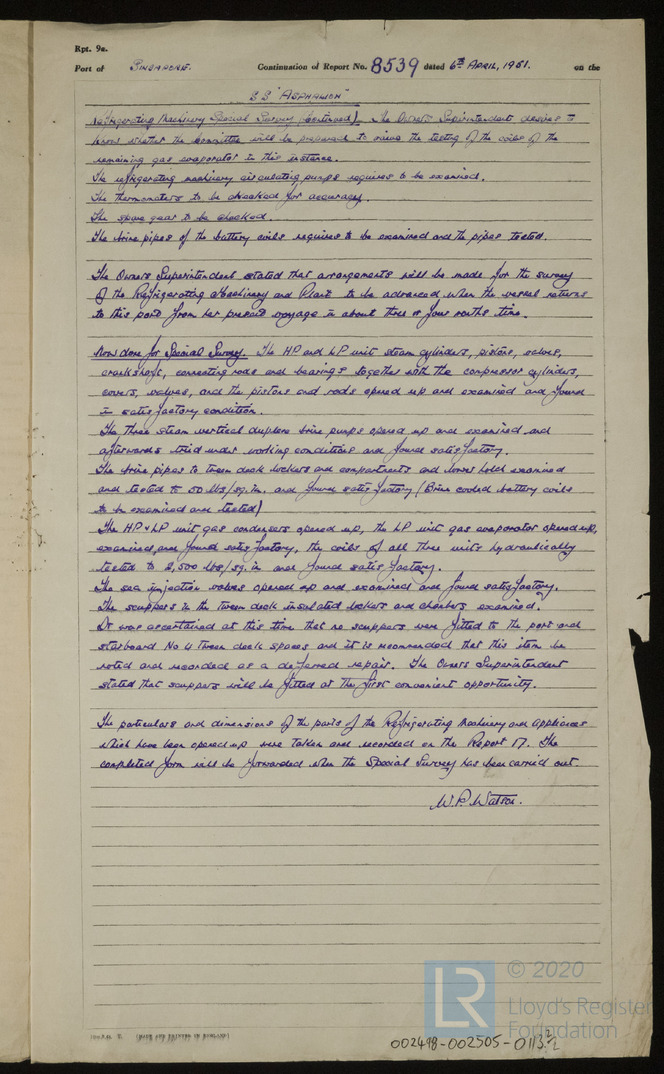 Rpt. 9a.
Port of SINGAPORE. Continuation of Report No. 8539 dated 6TH APRIL, 1951. on the
S S "ASPHALION"
Refrigerating Machinery Special Survey (Continued). The Owners Superintendent desires to
know whether the Committee will be prepared to waive the testing of the coils of the
remaining gas evaporator in this instance.
The refrigerating machinery circulating pumps requires to be examined.
The thermometers to be checked for accuracy.
The spare gear to be checked.
The brine pipes of the battery coils requires to be examined and the pipes tested.
The Owners Superintendent stated that arrangements will be made for the survey
of the Refrigerating Machinery and Plant to be advanced when the vessel returns
to this port from her present voyage in about three or four months time.
Now done for Special Survey. The HP and LP unit steam cylinders, pistons, valves,
crankshafts, connecting rods and bearings together with the compressor cylinders,
covers, valves, and the pistons and rods opened up and examined and found
in satisfactory condition.
The three steam vertical duplex brine pumps opened up and examined and
afterwards tried under working conditions and found satisfactory.
The brine pipes to tween deck lockers and compartments and lower hold examined
and tested to 50 lbs/sq.in. and found satisfactory (Brine cooled battery coils
to be examined and tested)
The HP & LP unit gas condensers opened up, the LP unit gas evaporator opened up,
examined, and found satisfactory, the coils of all three units hydraulically
tested to 2,500 lbs/sq.in and found satisfactory.
The sea injection valves opened up and examined and found satisfactory.
The scuppers in the tween deck insulated lockers and chambers examined.
It was ascertained at this time that no scuppers were fitted to the port and
starboard No 4 tween deck spaces and it is recommended that this item be
noted and recorded as a deferred repair. The Owners Superintendent
stated that scuppers will be fitted at the first convenient opportunity.
The particulars and dimensions of the parts of the Refrigerating Machinery and Appliances
which have been opened up were taken and recorded on the Report 17. The
completed form will be forwarded when the Special Survey has been carried out.
W.P. Watson.
LR
© 2020
Lloyd's Register
Foundation
002498-002505-0113 2/2